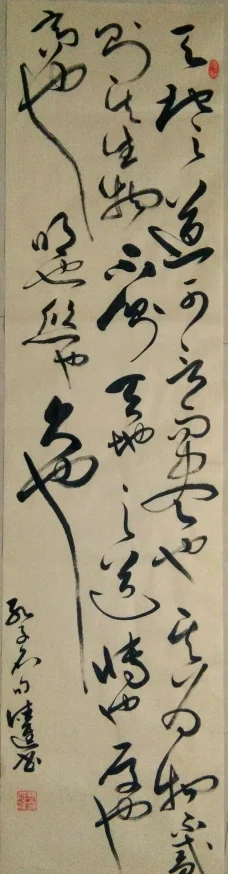 天地之道可一言而尽也其为物不贰
则其生物不测天地之道博也厚也
高也明也悠也久也
孔子名句
书